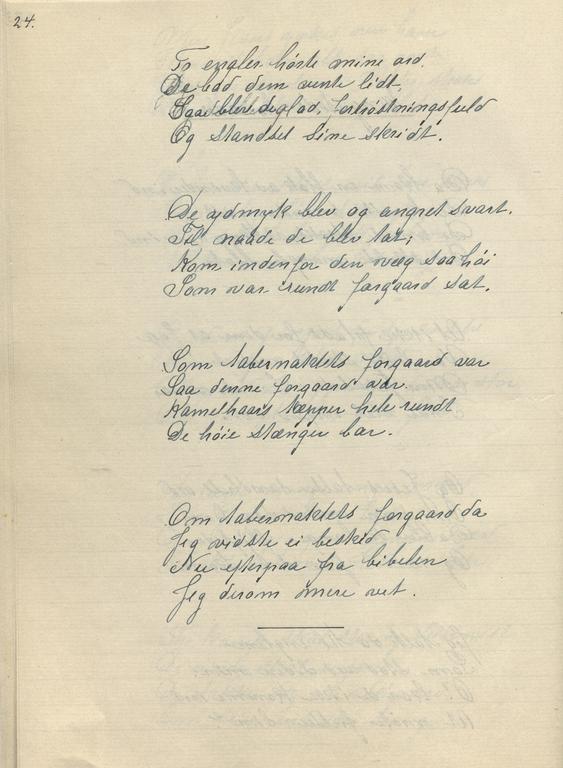 24.
To engler hørte mine ord.
De bad dem vente lidt,
Saa blev de glad, fortrøstningsfuld
Og standset sine skridt.
De ydmyk blev og angret svart.
Til naade de blev tat;
Kom indenfor den væg saa høi
Som var rundt forgaard sat.
Som tabernaklets forgaard var
Saa denne forgaard var.
Kamelhaars tæpper hele rundt
De høie stænger bar.
Om tabernaklets forgaard da
Jeg vidste ei besked
Nu efterpaa fra bibelen
Jeg derom mere vet.